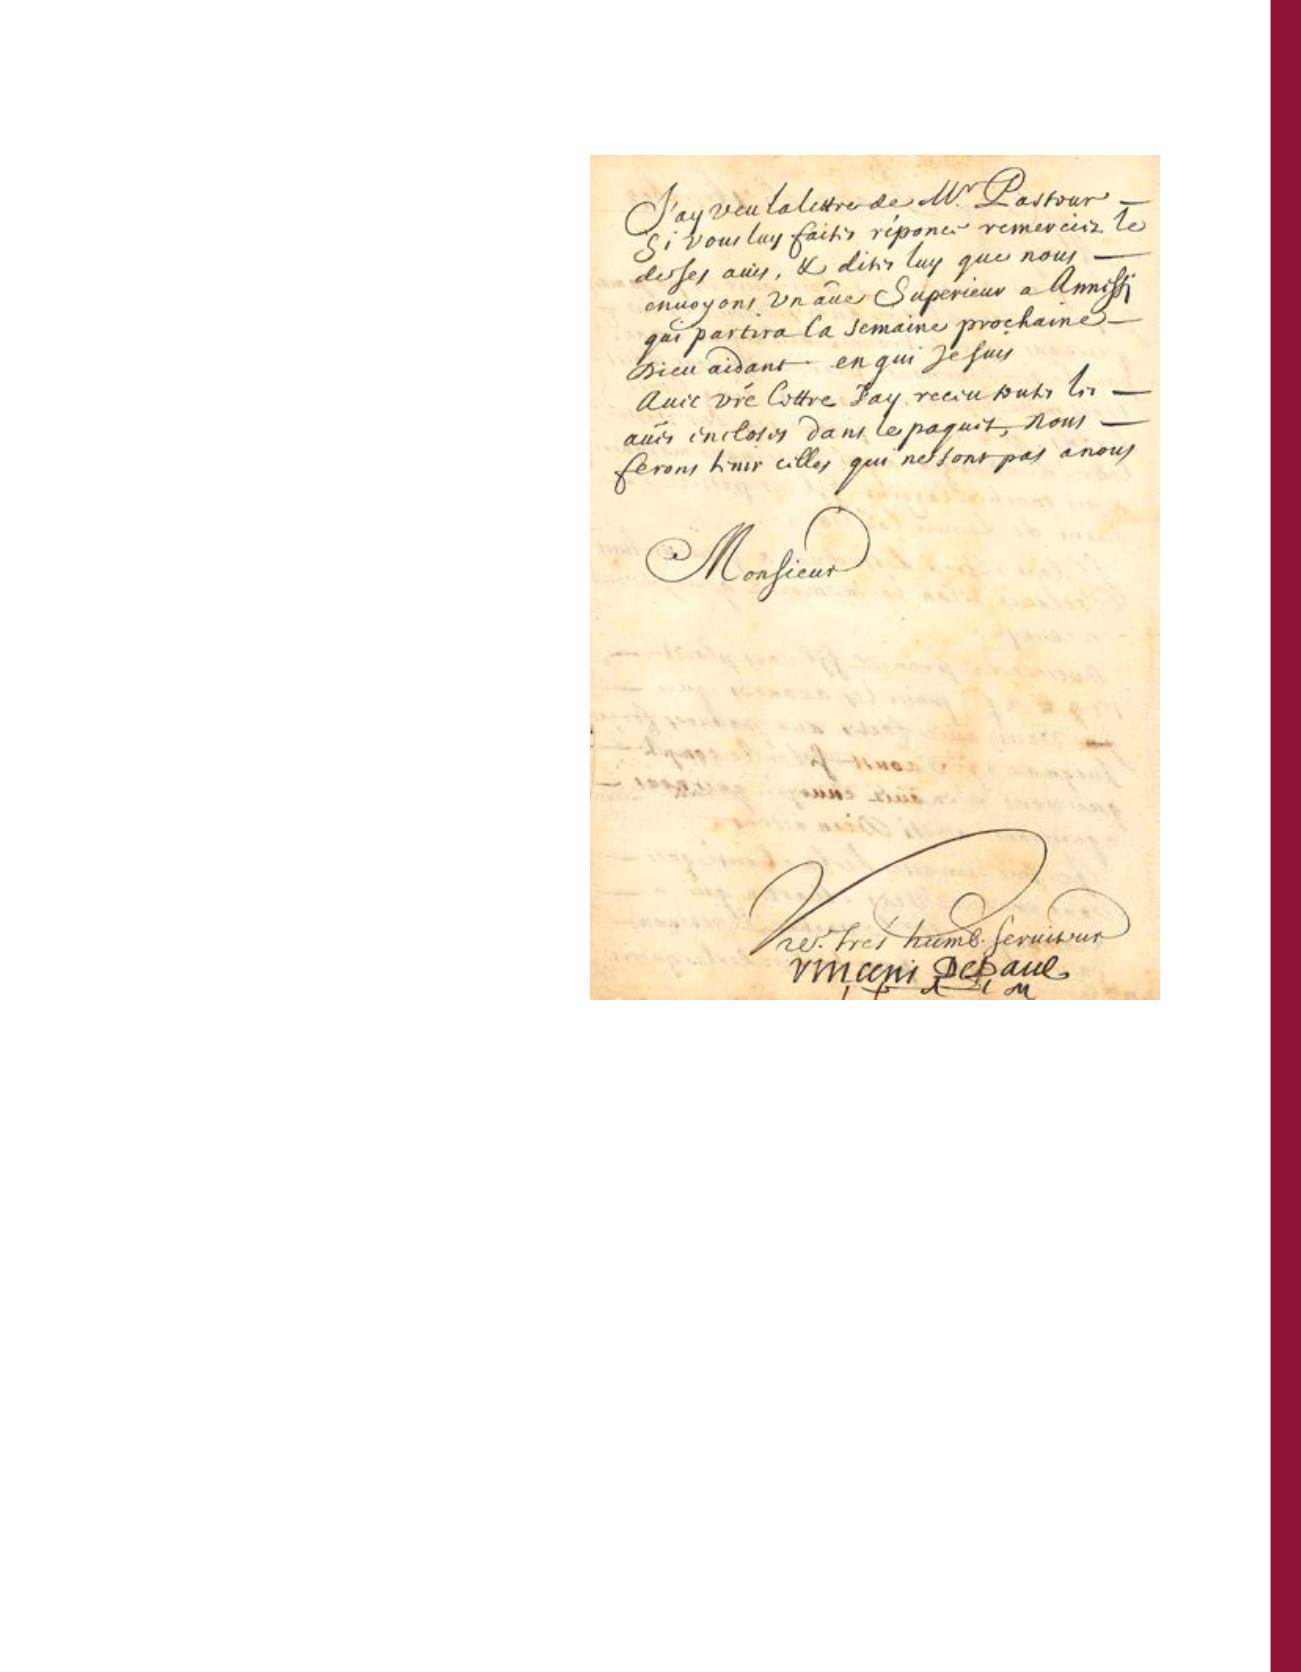 J'ay veu la lettre de Mr. Pastour —
Si vous luy faites réponce remerciez le
de ses auis, & dites luy que nous —
enuoyons vn aũe Superieur a Annissi
qui partira la semaine prochaine —
Dieu aidant en qui Je suis
Auec vr̃e lettre J'ay receu toutes les —
aũes incloses dans le paquet, nous —
ferons tenir celles qui ne sont pas a nous
Monsieur
Vre. tres humb. seruiteur
Vincent Depaul